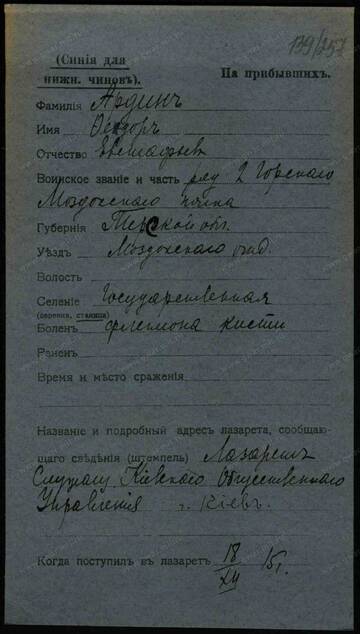 139/257
(Синія для
нижн. чиновъ).
На прибывшихъ.
Фамилія Ардинъ
Имя Ѳедоръ
Отчество Евстафьев
Воинское званіе и часть ряд 2 Горскаго
Моздокскаго полка
Губернія Терской обл.
Уѣздъ Моздокскаго отд.
Волость
Селеніе Государственная
(деревня, станица)
Боленъ флегмона кисти
Раненъ
Время и мѣсто сраженія
Названіе и подробный адресъ лазарета, сообщаю-
щаго свѣдѣнія (штемпель) Лазаретъ
Служащ. Кіевскаго Общественнаго
Управленія г. Кіевъ.
Когда поступилъ въ лазаретъ 18/XII 15 г.